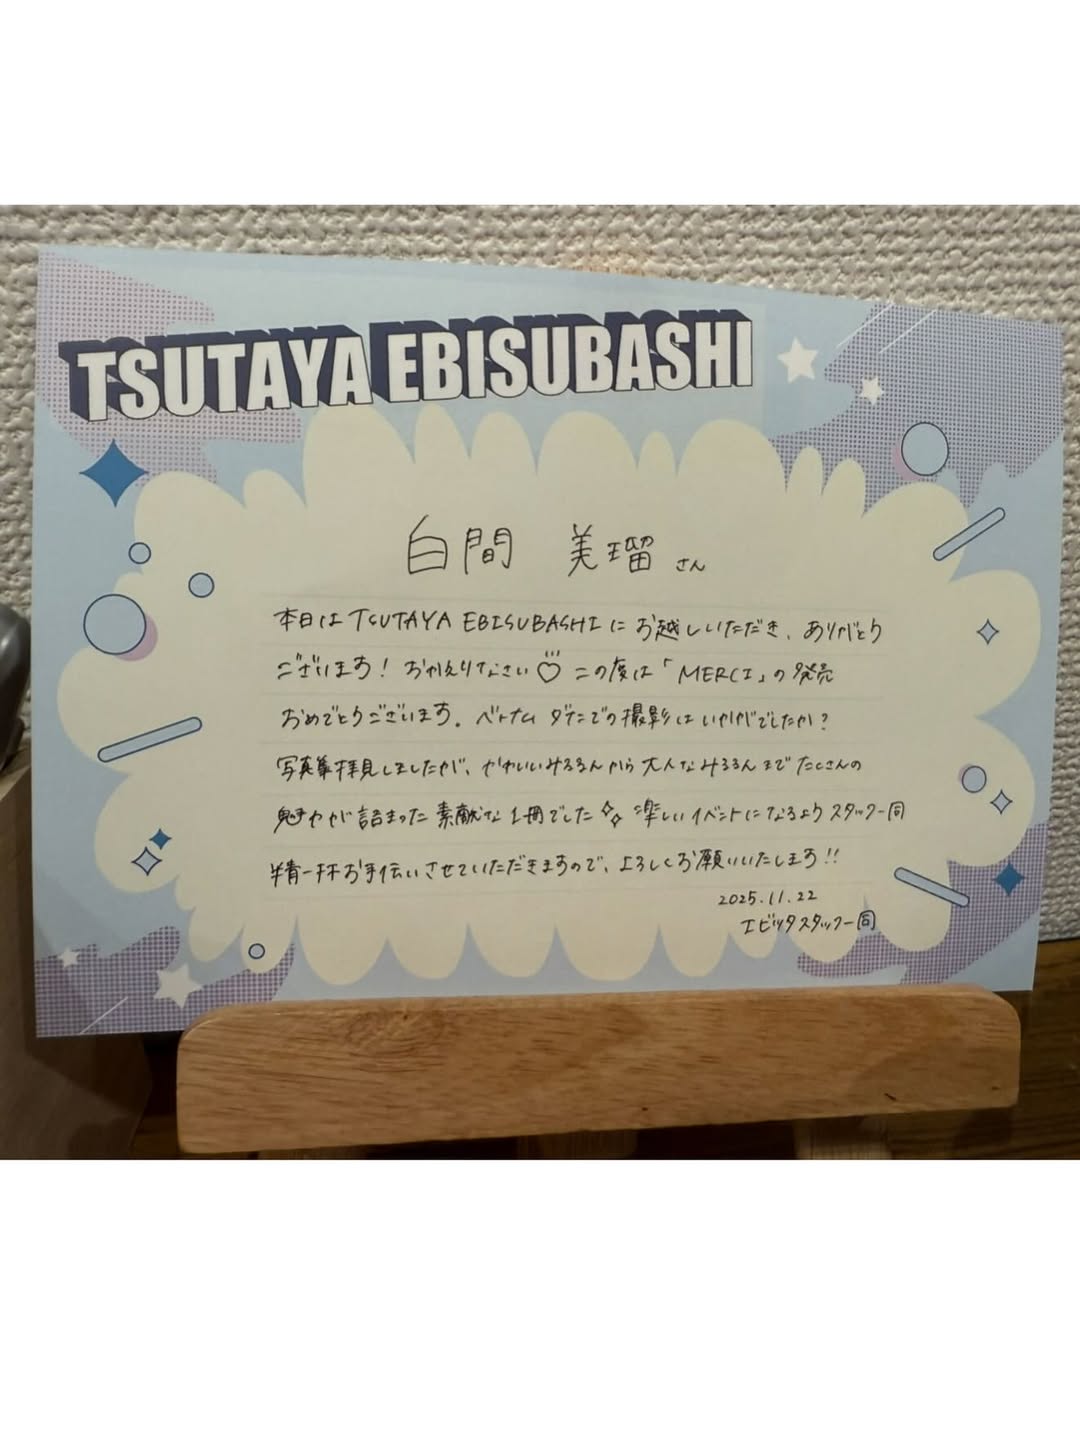 TSUTAYA EBISUBASHI
白間 美瑠さん
本日は TSUTAYA EBISUBASHI に お越しいただき、ありがとう
ございます! おかえりなさい♡ この度は「MERCI」の発売
おめでとうございます。ベトナム ダナンでの撮影はいかがでしたか?
写真集拝見しましたが、かわいいみるるんから大人なみるるんまでたくさんの
魅力が詰まった素敵な1冊でした✧ 楽しいイベントになるようスタッフ一同
精一杯お手伝いさせていただきますので、よろしくお願いいたします!!
2025.11.22
エビツタスタッフ一同